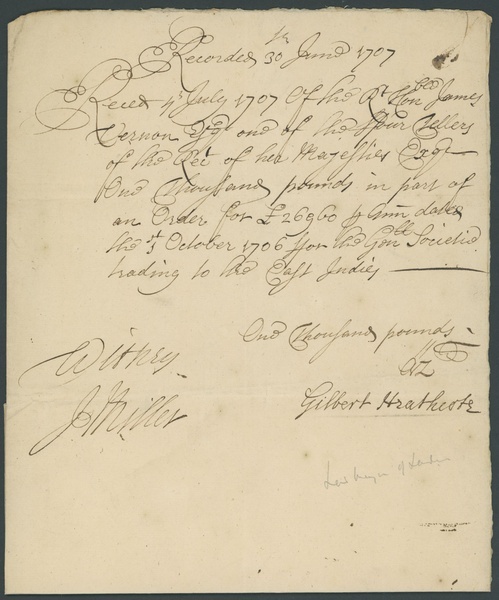 Recorded 30th June 1707
Reced 4th July 1707 Of the Rt. Honble James
Vernon Esqr one of the ffour Tellers
of the Rect of her Majesties Excheqr
One Thousand pounds in part of
an Order for £26960 p Ann dated
the 1st October 1706 for the Genll Societie
trading to the East Indies
One Thousand pounds
Witnes
J Miller
Gilbert Heathcote
Lord Mayor of London